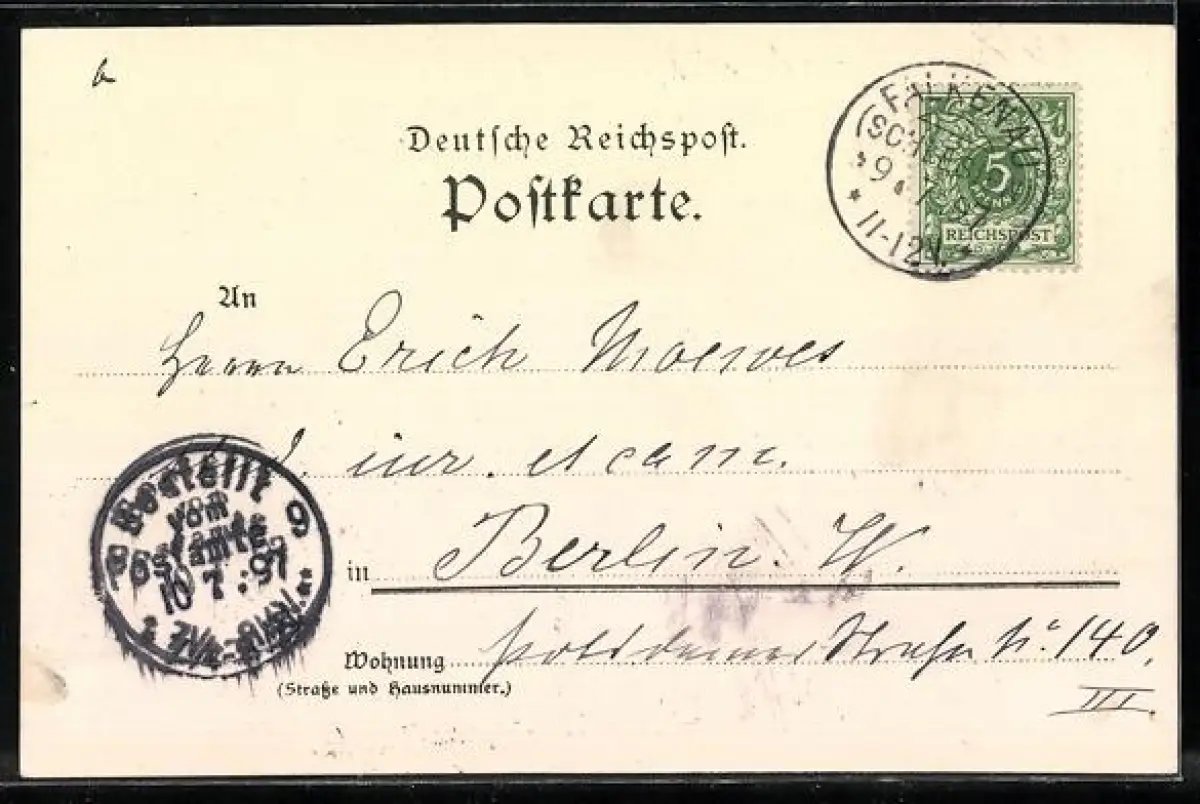 Deutsche Reichspost.
Postkarte.
FALKENAU
(SCHLES
9 7 97
11-12V.
5
REICHSPOST
An
Herrn Erich Moewes
iur. et cam.
Bestellt
vom
Postamte 9
10 7 : 97
in Berlin. W.
Wohnung Potsdamer Straße No 140,
(Straße und Hausnummer.)
III.